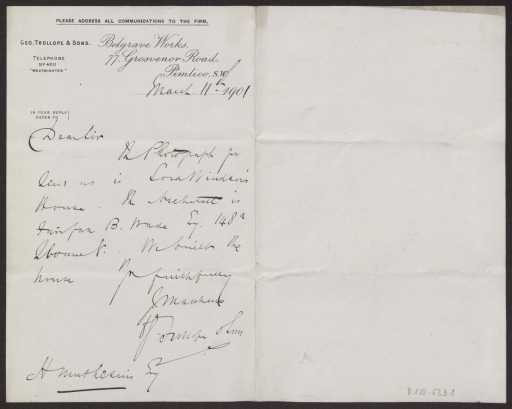 PLEASE ADDRESS ALL COMMUNICATIONS TO THE FIRM.
GEO. TROLLOPE & SONS.
Belgrave Works,
77, Grosvenor Road,
Pimlico, S.W.
TELEPHONE
"WESTMINSTER"
March 11th 1901
IN YOUR REPLY
REFER TO
Dear Sir
The Photograph you
send us is Lord Windsor's
House. The Architect is
Fairfax B. Wade Esq. 148a
Sloane St. We built the
house
Yrs faithfully
Trollope & Sons
H Muthesius Esq